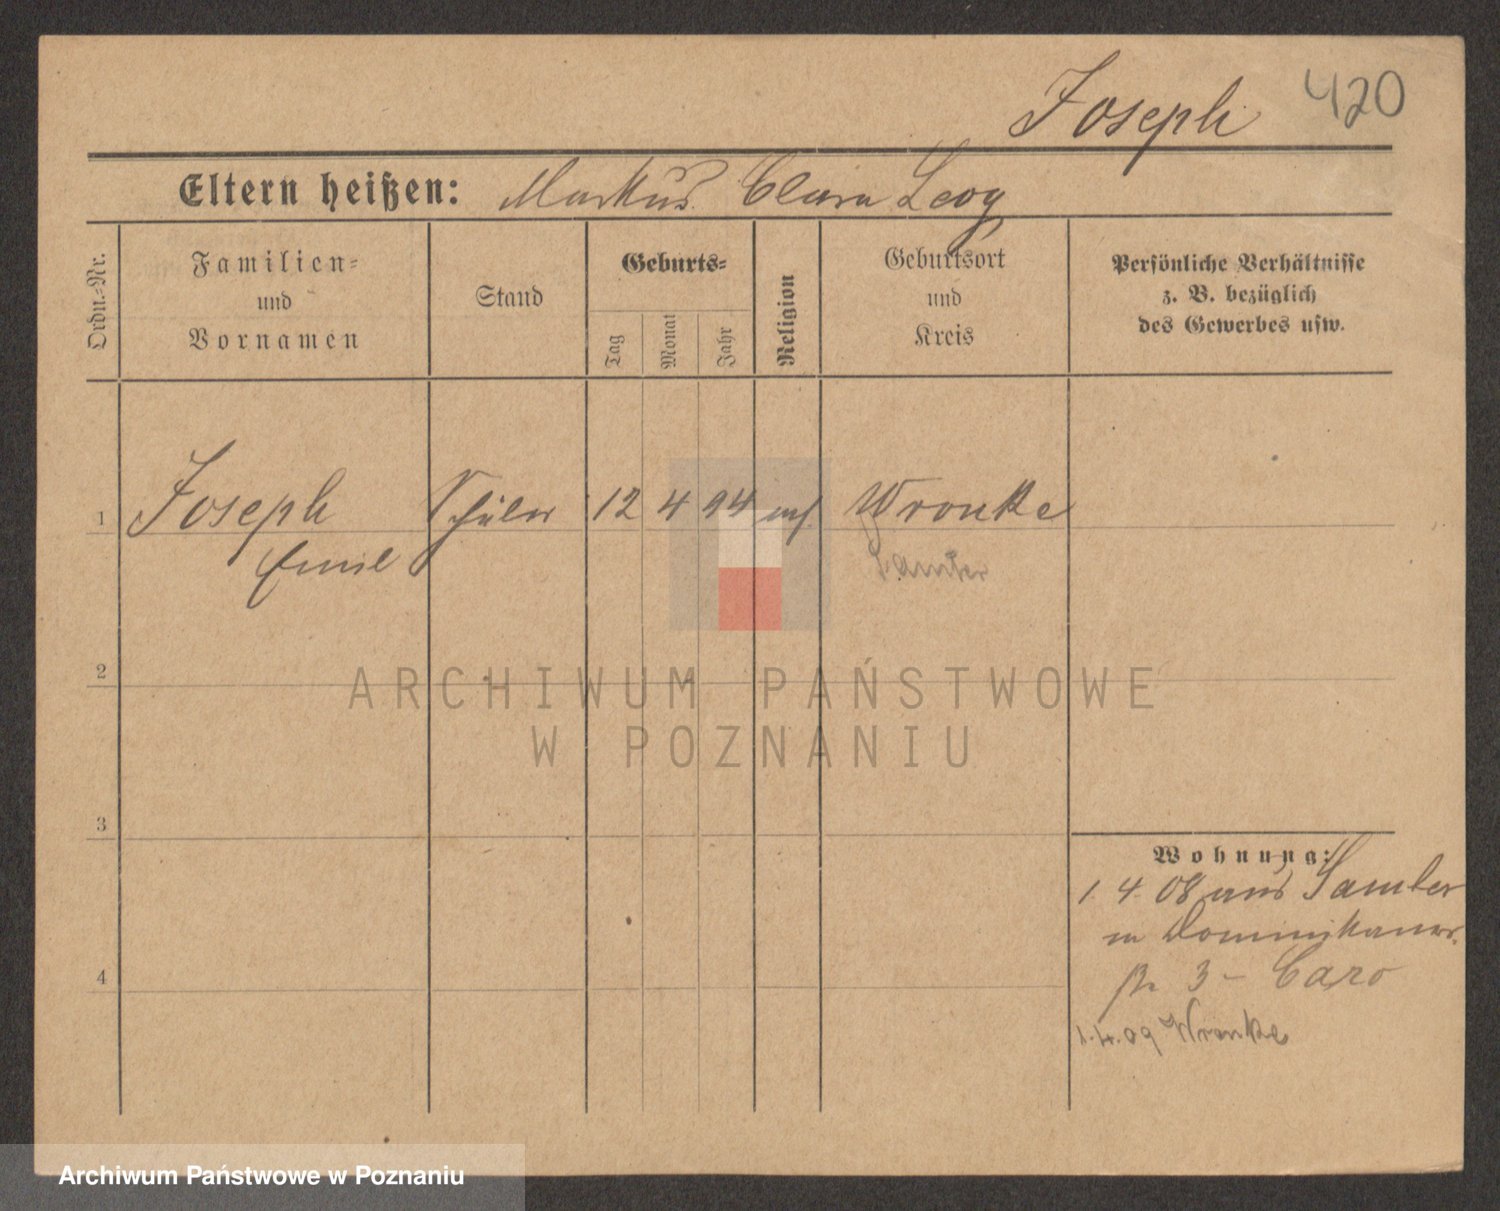 Joseph 420
Eltern heißen: Markus Clara Levy
Ordn.-Nr.
Familien-
und
Vornamen
Stand
Geburts-
Tag
Monat
Jahr
Religion
Geburtsort
und
Kreis
Persönliche Verhältnisse
z. B. bezüglich
des Gewerbes usw.
1 Joseph Schüler 12 4 94 Wronke
Emil Samter
2
ARCHIWUM PAŃSTWOWE
W POZNANIU
3
Wohnung:
1. 4. 08 aus Samter
in Dominikaner-
str 3 - Caro
4
1.4.09 Wronke
Archiwum Państwowe w Poznaniu